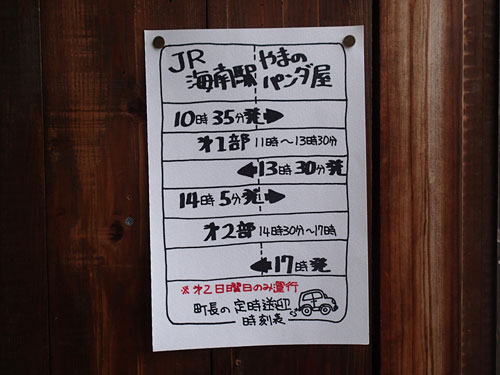 JR 海南駅
やまの パンダ屋
10時35分発
才1部 11時〜13時30分
13時30分発
14時5分発
才2部 14時30分〜17時
17時発
※才2日曜日のみ運行
町長の定時送迎
時刻表